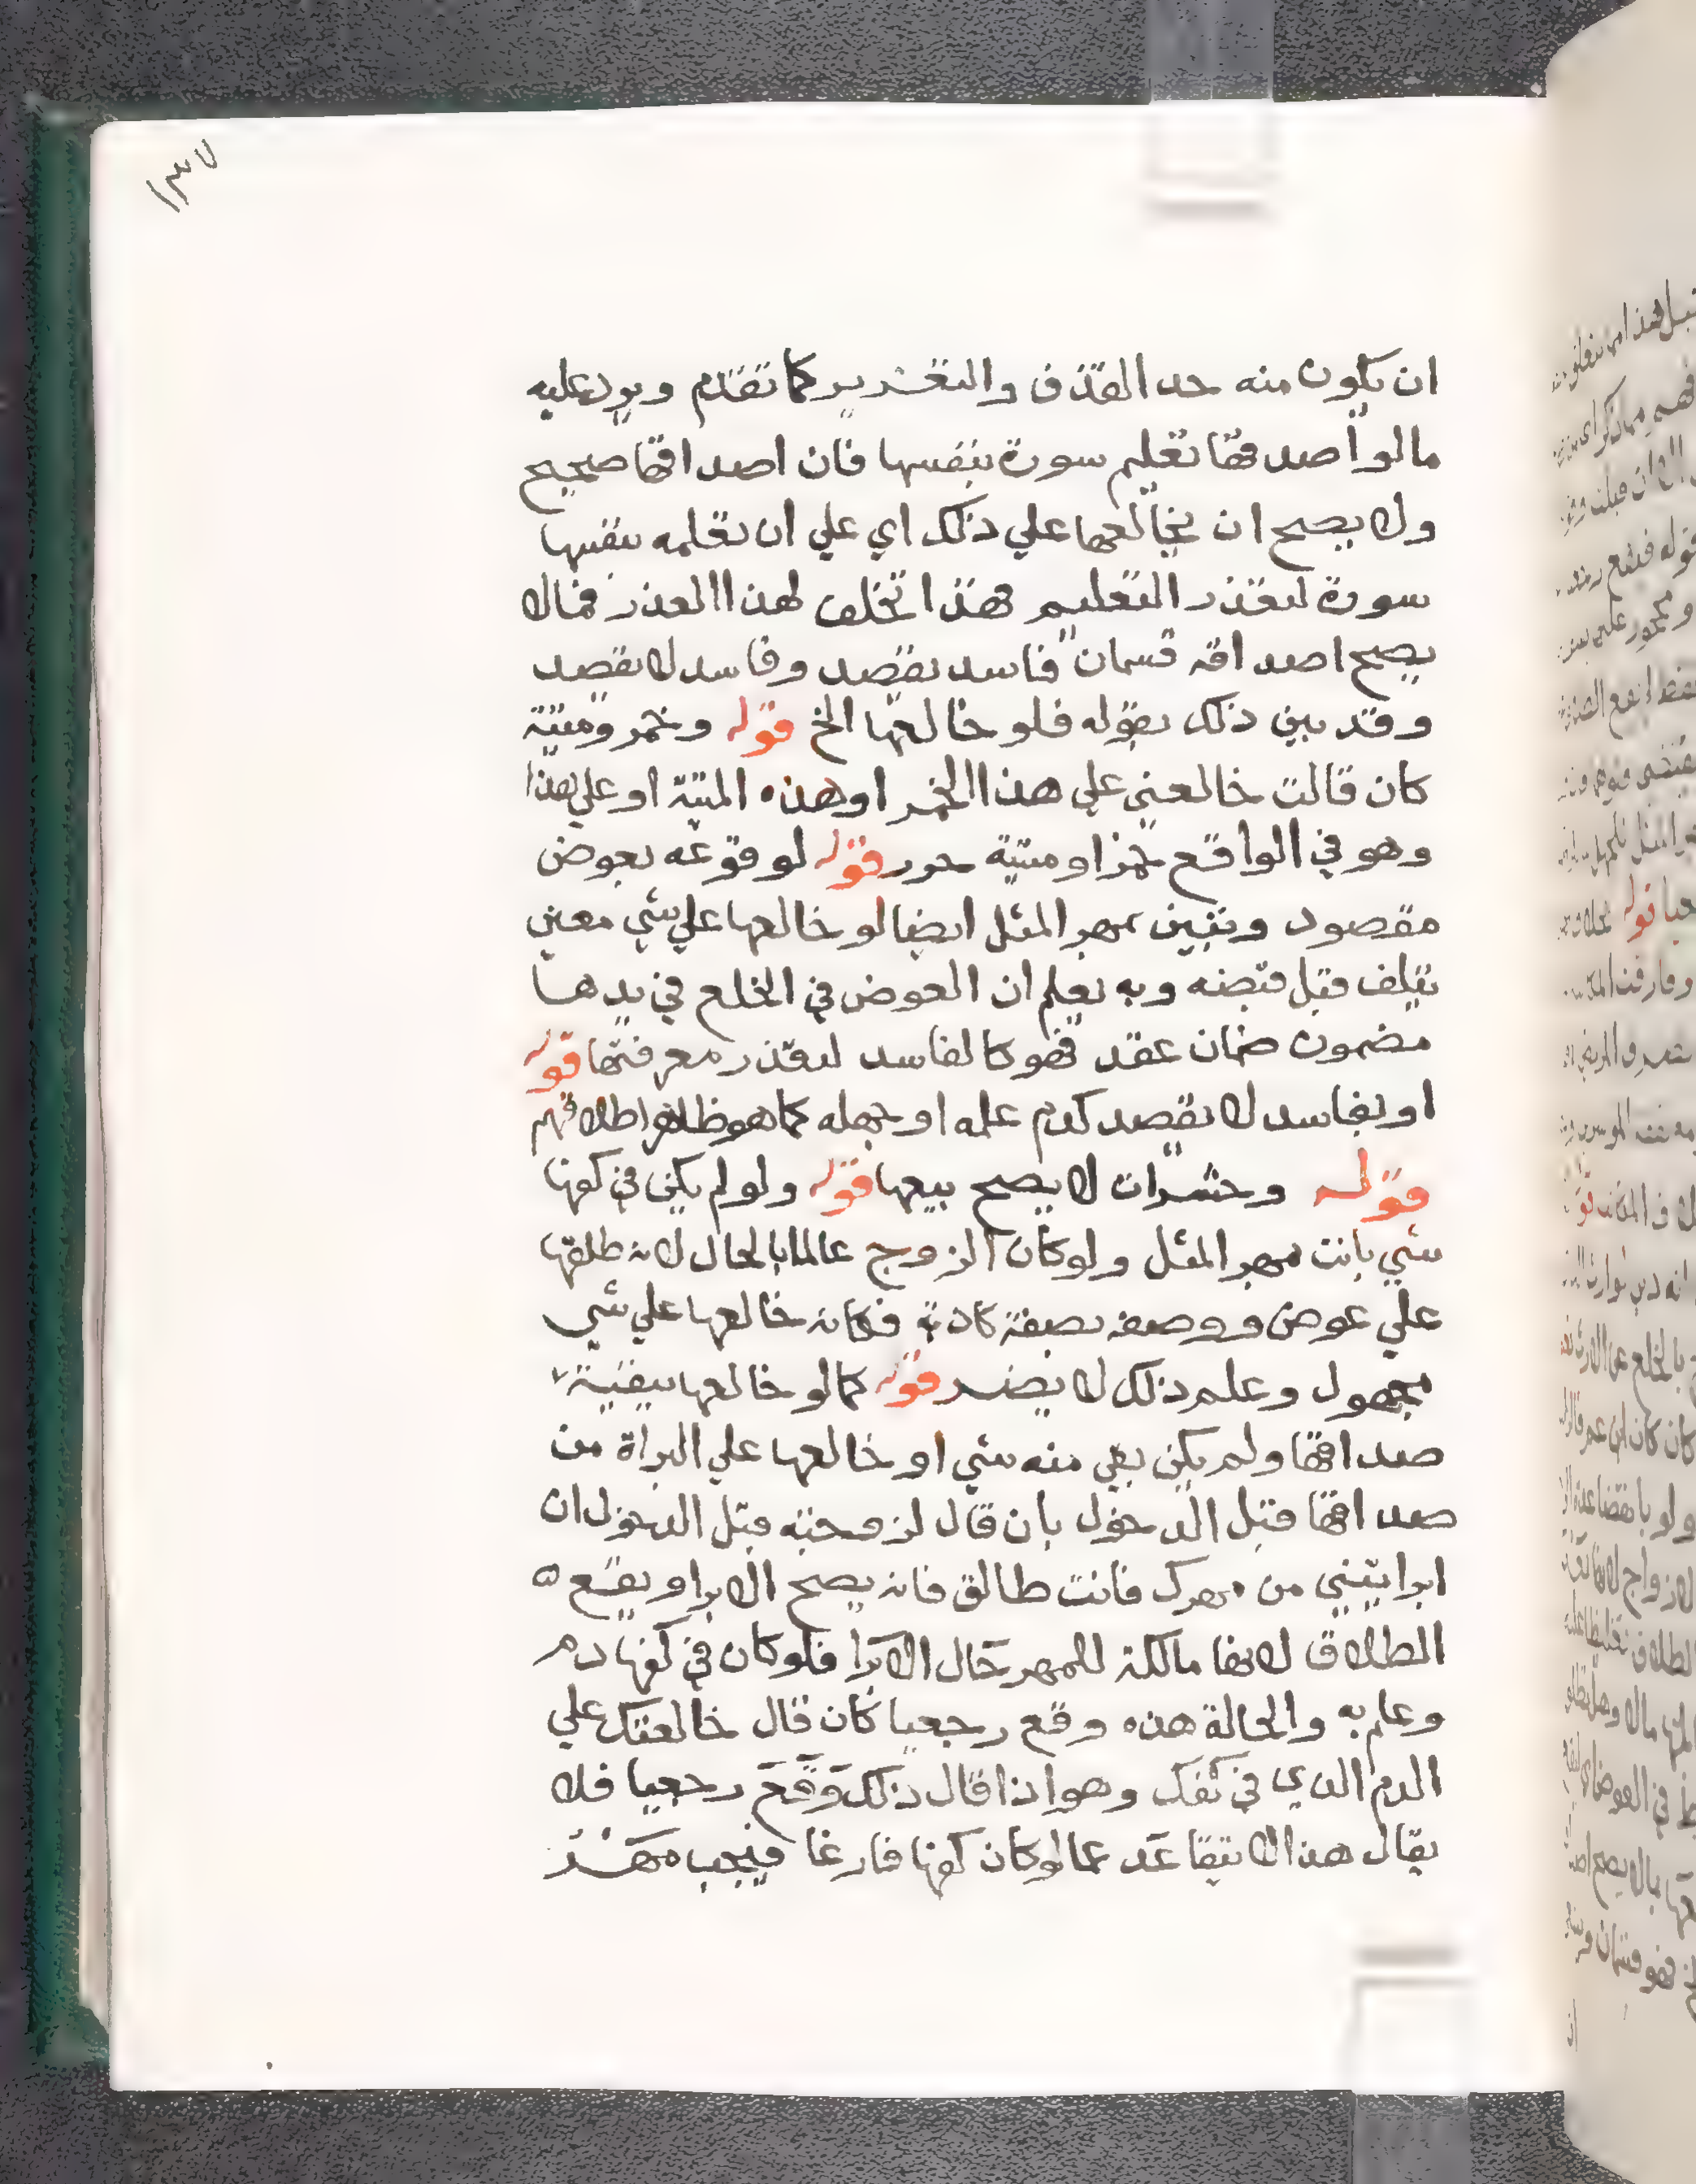 ١٣٧
ان يكون منه حد القذف والتعزير كما تقدم ويرد عليه
مالو اصدقها تعليم سورة بنفسها فان اصداقها صحيح
ولا يصح ان يخالعها علي ذلك اي علي ان تعلمه بنفسها
سورة لتعذر التعليم فهذا تخلف لهذا العذر فمالا
يصح اصداقه قسمان فاسد يقصد وفاسد لا يقصد
وقد بين ذلك بقوله فلو خالعها الخ قوله وخمر وميتة
كان قالت خالعني علي هذا الخمر او هذه الميتة او علي هذا
وهو في الواقع خمر او ميتة قوله لوقوعه بعوض
مقصود وتبين بمهر المثل ايضا لو خالعها علي شي معين
تلف قبل قبضه وبه يعلم ان العوض في الخلع في يدها
مضمون ضمان عقد فهو كالفاسد لتعذر معرفتها قوله
او بفاسد لا يقصد كدم علمه او جهله كما هو ظاهر اطلاقهم
قوله وحشرات لا يصح بيعها قوله ولو لم يكن في كفها
شي بانت بمهر المثل ولو كان الزوج عالما بالحال لانه طلقها
علي عوض ووصفه بصفة كاذبة فكانه خالعها علي شي
مجهول وعلم ذلك لا يضر قوله كما لو خالعها ببقية
صداقها ولم يكن بقي منه شي او خالعها علي البراة من
صداقها قبل الدخول بان قال لزوجته قبل الدخول ان
ابراتيني من مهرك فانت طالق فانه يصح الابرا ويقع
الطلاق لانها مالكة للمهر حال الابرا فلو كان في كفها دم
وعلم به والحالة هذه وقع رجعيا كان قال خالعتك علي
الدم الذي في كفك وهو اذا قال ذلك وقع رجعيا فلا
يقال هذا لا يتقاعد عما لو كان كفها فارغا فيجب مهر